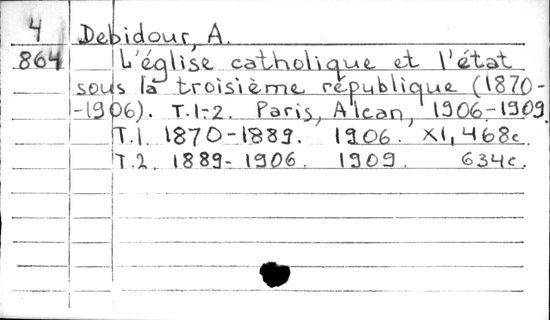 4 Debidour, A.
864 L'église catholique et l'état
sous la troisième république (1870-
-1906). T.1-2. Paris, Alcan, 1906-1909.
T.1. 1870-1889. 1906. XI, 468c.
T.2. 1889-1906. 1909. 634c.